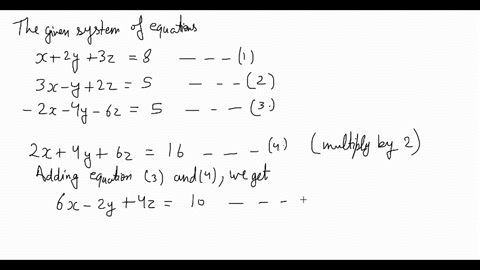 The given system of equations
x+2y+3z = 8 — — — (1)
3x-y+2z = 5 — — - (2)
-2x-4y-6z = 5 — - — (3)
2x+4y+6z = 16 — — — (4) (multiply by 2)
Adding equation (3) and (4), we get
6x-2y+4z = 10 — — -